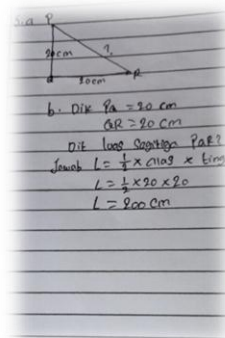 5.a P
20cm
?
20cm R
b. Dik PQ = 20 cm
QR = 20 cm
Dit luas segitiga PQR?
Jawab L = 1/2 × alas × ting
L = 1/2 × 20 × 20
L = 200 cm